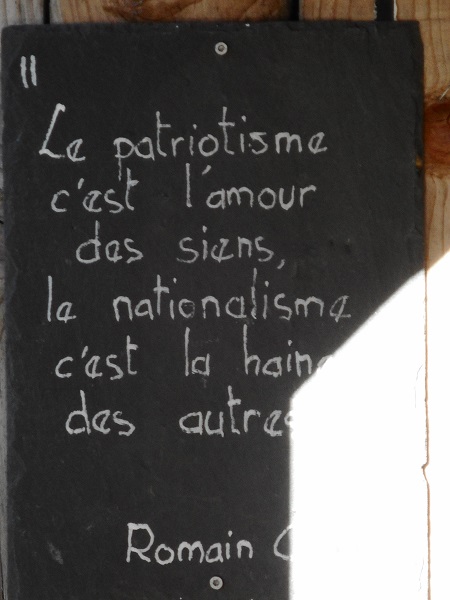 "
Le patriotisme
c'est l'amour
des siens,
le nationalisme
c'est la haine
des autres
Romain